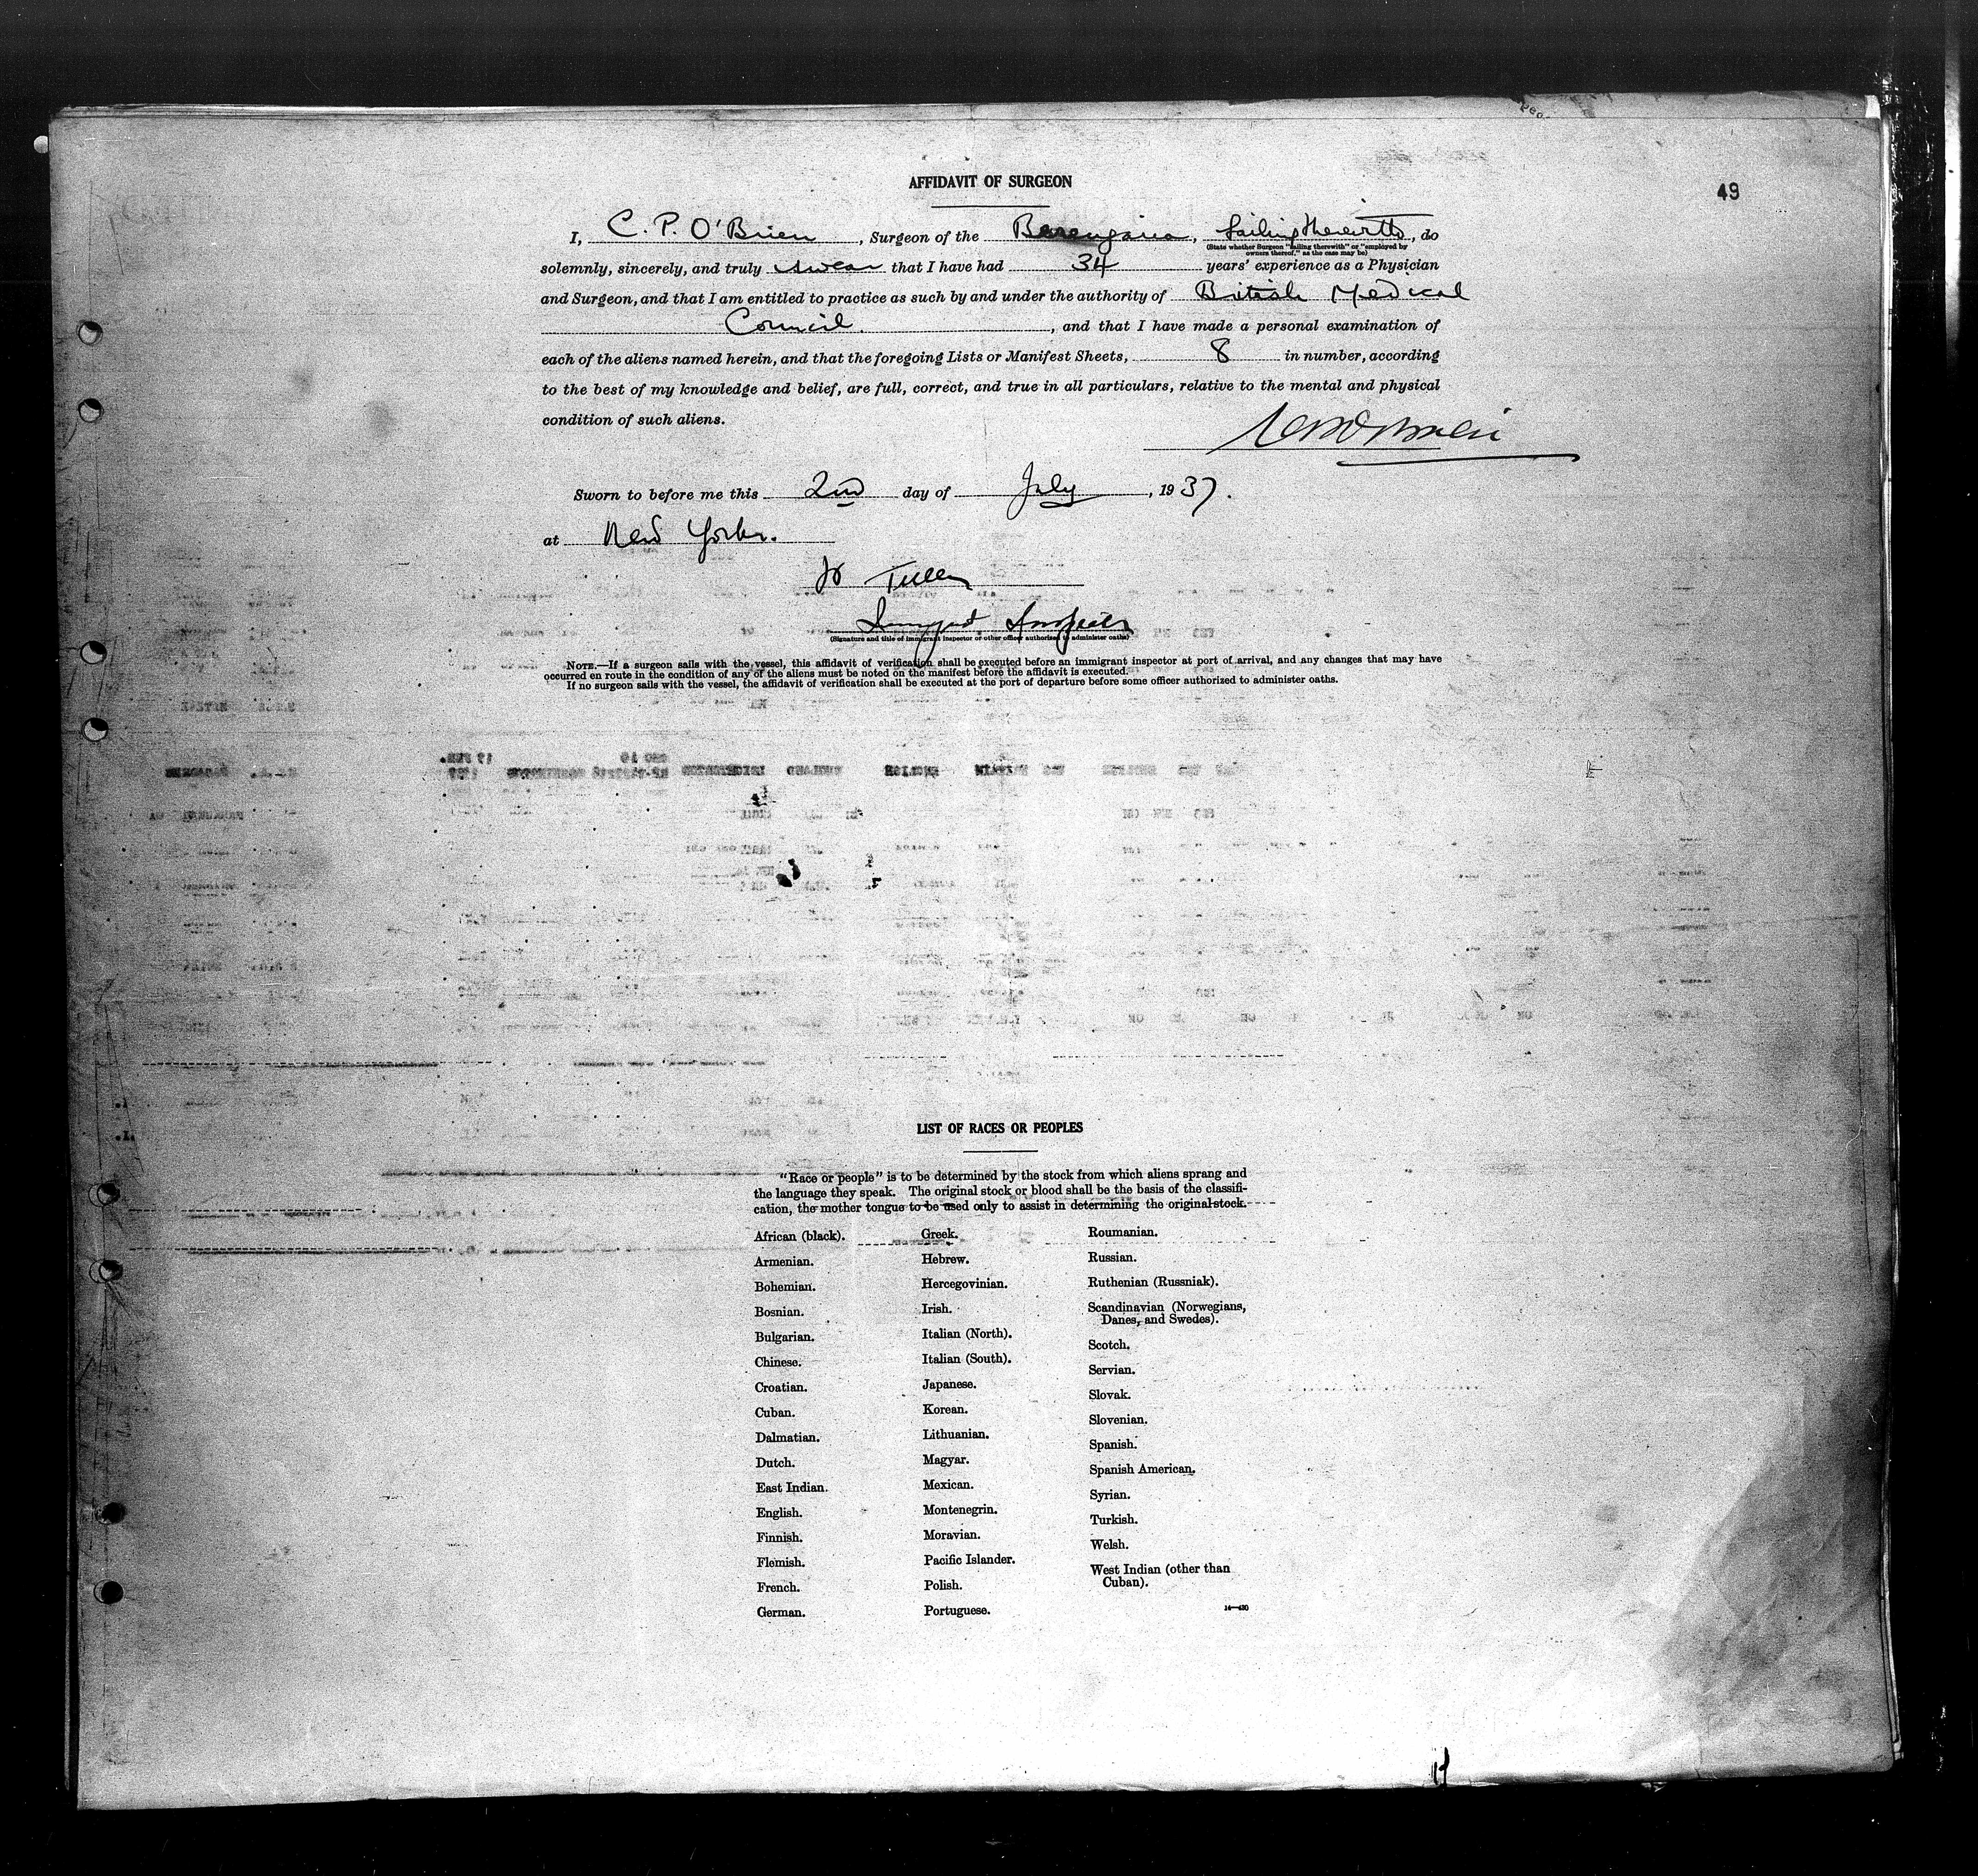 AFFIDAVIT OF SURGEON
49
I, C. P. O'Brien, Surgeon of the Berengaria, Sailing therewith, do
(State whether Surgeon "sailing therewith" or "employed by
owners thereof," as the case may be)
solemnly, sincerely, and truly swear that I have had 34 years' experience as a Physician
and Surgeon, and that I am entitled to practice as such by and under the authority of British Medical
Council., and that I have made a personal examination of
each of the aliens named herein, and that the foregoing Lists or Manifest Sheets, 8 in number, according
to the best of my knowledge and belief, are full, correct, and true in all particulars, relative to the mental and physical
condition of such aliens.
Sworn to before me this 2nd day of July, 1937.
at New York.
Immigrant Inspector
(Signature and title of immigrant inspector or other officer authorized to administer oaths)
NOTE.—If a surgeon sails with the vessel, this affidavit of verification shall be executed before an immigrant inspector at port of arrival, and any changes that may have
occurred en route in the condition of any of the aliens must be noted on the manifest before the affidavit is executed.
If no surgeon sails with the vessel, the affidavit of verification shall be executed at the port of departure before some officer authorized to administer oaths.
LIST OF RACES OR PEOPLES
"Race or people" is to be determined by the stock from which aliens sprang and
the language they speak. The original stock or blood shall be the basis of the classifi-
cation, the mother tongue to be used only to assist in determining the original stock.
African (black).
Armenian.
Bohemian.
Bosnian.
Bulgarian.
Chinese.
Croatian.
Cuban.
Dalmatian.
Dutch.
East Indian.
English.
Finnish.
Flemish.
French.
German.
Greek.
Hebrew.
Hercegovinian.
Irish.
Italian (North).
Italian (South).
Japanese.
Korean.
Lithuanian.
Magyar.
Mexican.
Montenegrin.
Moravian.
Pacific Islander.
Polish.
Portuguese.
Roumanian.
Russian.
Ruthenian (Russniak).
Scandinavian (Norwegians,
Danes, and Swedes).
Scotch.
Servian.
Slovak.
Slovenian.
Spanish.
Spanish American.
Syrian.
Turkish.
Welsh.
West Indian (other than
Cuban).